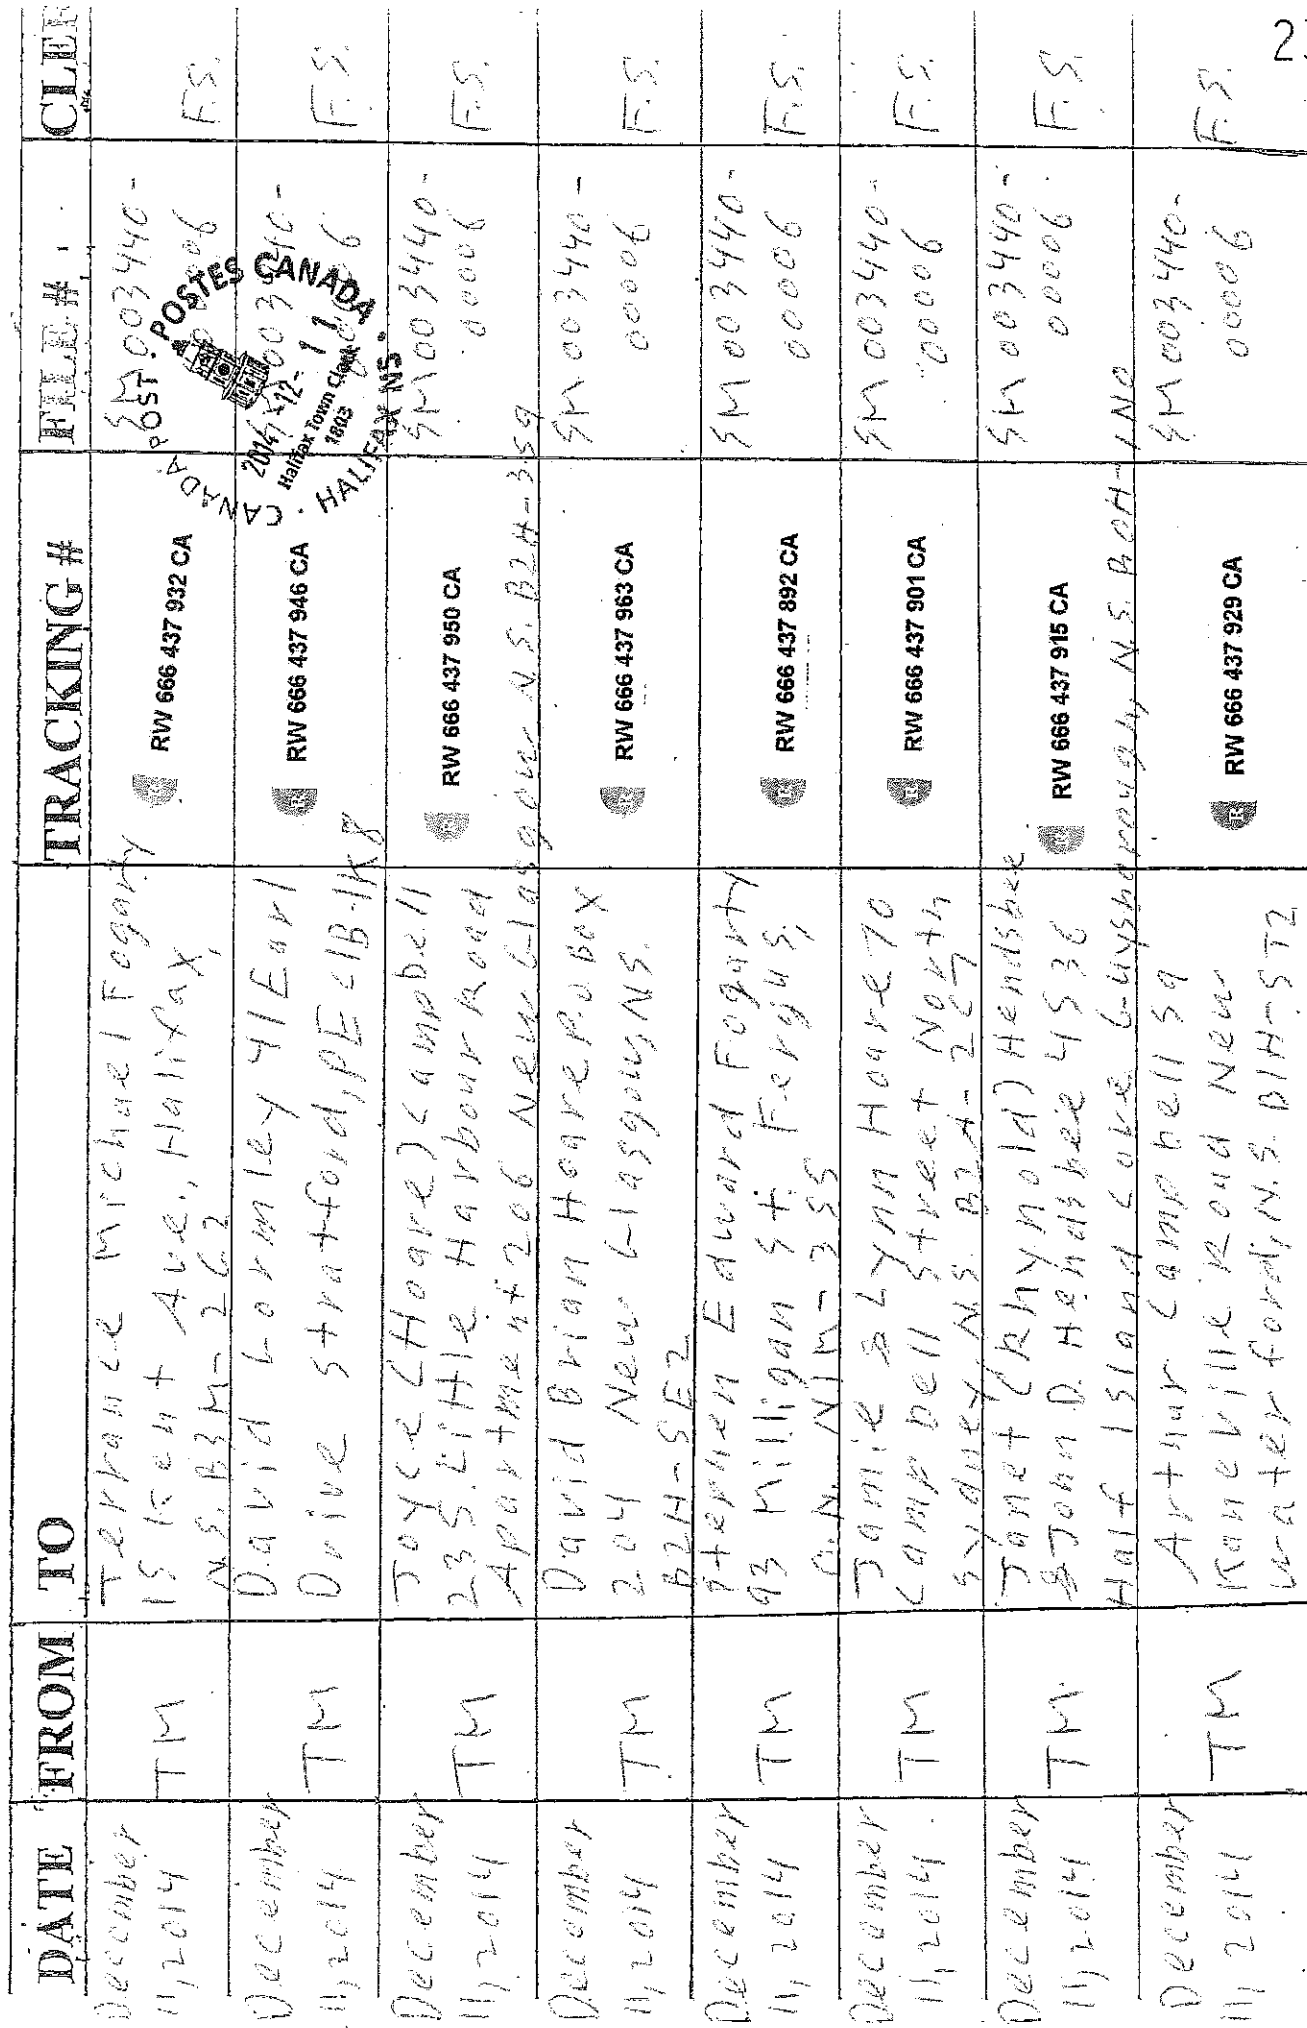 DATE FROM TO TRACKING # FILE #
December 11, 2014
TM
Terrance Michael Fogarty
15 Kent Ave., Halifax,
N.S. B3M-2G2
RW 666 437 932 CA
SM003440-
00006
F.S.
December 11, 2014
TM
David Gormley 41 Earl
Drive Stratford, PE C1B-1K8
RW 666 437 946 CA
SM003440-
00006
F.S.
December 11, 2014
TM
Joyce (Hoare) Campbell
235 Little Harbour Road
Apartment 206 New Glasgow N.S. B2H-3S9
RW 666 437 950 CA
SM003440-
00006
F.S.
December 11, 2014
TM
David Brian Hoare P.O Box
204 New Glasgow, NS.
B2H-5E2
RW 666 437 963 CA
SM003440-
00006
F.S.
December 11, 2014
TM
Stephen Edward Fogarty
93 Milligan St. Fergus,
O.N. N1M-3S5
RW 666 437 892 CA
SM003440-
00006
F.S.
December 11, 2014
TM
Jamie Lynn Hoare 70
Campbell Street North
Sydney, NS. B2A-2C7
RW 666 437 901 CA
SM003440-
00006
F.S.
December 11, 2014
TM
Janet (Rhynold) Hendsbee
& John D. Hendsbee 4536
Half Island Cove Guysborough, N.S. B0H-1N0
RW 666 437 915 CA
SM003440-
00006
F.S.
December 11, 2014
TM
Arthur Campbell 59
Kaneville Road New
Waterford, N.S. B1H-5T2
RW 666 437 929 CA
SM003440-
00006
F.S.
CANADA POST · POSTES CANADA
2014-12-11
Halifax Town Clock
1803
CANADA · HALIFAX NS ·